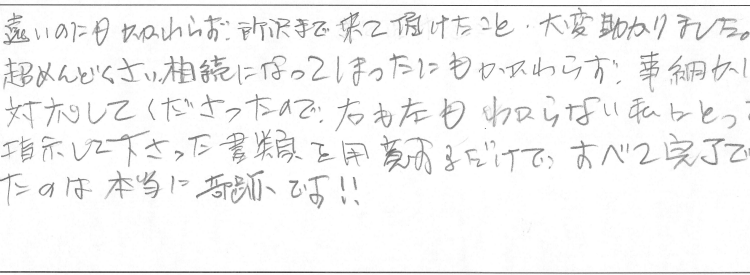 遠いのにもかかわらず、所沢まで来て頂けたこと、大変助かりました。
超めんどくさい相続になってしまったにもかかわらず、事細かに
対応してくださったので、右も左もわからない私にとっ
指示して下さった書類を用意するだけで、すべて完了で
たのは本当に奇跡です!!